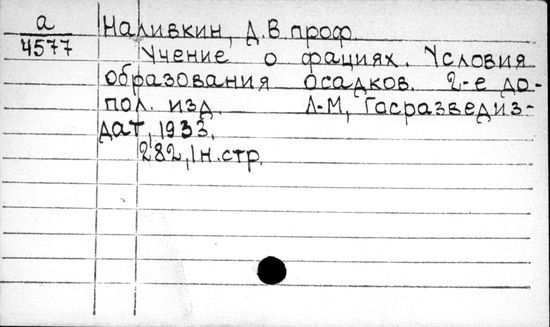 а
4577
Наливкин, Д.В. проф.
Учение о фациях. Условия
образования осадков. 2-е до-
пол. изд. Л-М, Госразведиз-
дат, 1933.
282, 1 н. стр.